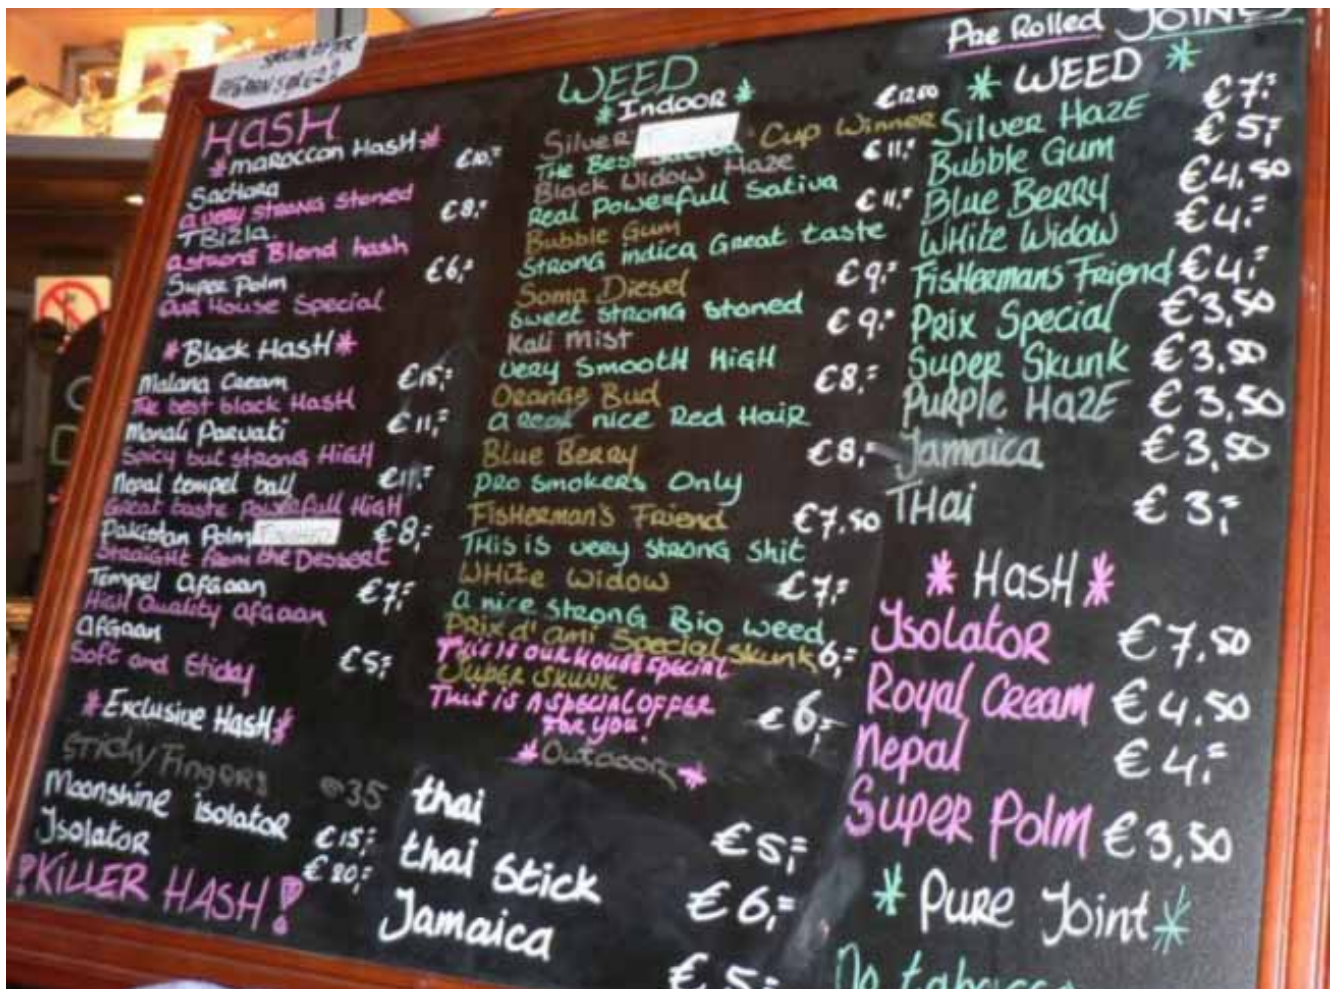 HASH
*MAROCCAN HASH*
Sachara €10,=
a very strong stoned
TBizla €8,=
a strong Blond hash
Super Polm €6,=
our House Special
*Black Hash*
Malana Cream €15,=
The best black Hash
Manali Parvati €11,=
Spicy but strong High
Nepal tempel ball €11,=
Great taste Powerfull High
Pakistan Polm €8,=
Straight from the Dessert
Tempel afgaan €7,=
High Quality afgaan
afgaan €5,=
Soft and Sticky
*Exclusive Hash*
Sticky Fingers €35
Moonshine isolator €15,=
Isolator €20,=
!KILLER HASH!
WEED
*Indoor*
Silver Cup Winner €12.50
The Best Sativa
Black Widow Haze €11,=
Real Powerfull Sativa
Bubble Gum €11,=
Strong indica Great taste
Soma Diesel €9,=
Sweet strong stoned
Kali Mist €9,=
very Smooth High
Orange Bud €8,=
a Real nice Red Hair
Blue Berry €8,=
Pro smokers Only
Fisherman's Friend €7,50
This is very strong shit
White Widow €7,=
a nice strong Bio weed
Prix d'ami Special skunk 6,=
This is our house special
Super Skunk
This is a special offer €6,=
for you!
*Outdoor*
thai €5,=
thai Stick €6,=
Jamaica €5,=
Pre Rolled Joints
* WEED *
Silver Haze €7,=
Bubble Gum €5,=
Blue Berry €4,50
White Widow €4,=
Fishermans Friend €4,=
Prix Special €3,50
Super Skunk €3,50
Purple Haze €3,50
Jamaica €3,50
THai €3,=
* Hash *
Isolator €7,50
Royal Cream €4,50
Nepal €4,=
Super Polm €3,50
* Pure Joint *
No tabacco